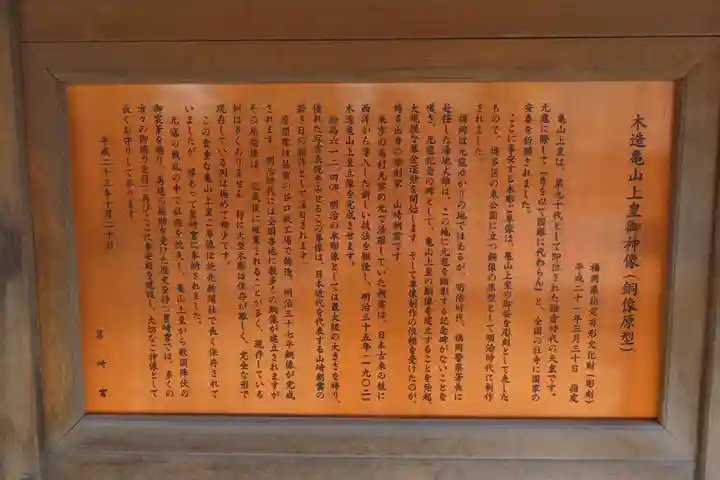 木造亀山上皇御神像（銅像原型）
福岡県指定有形文化財（彫刻）
平成二十二年三月三十日　指定
亀山上皇は、第九十代として即位された鎌倉時代の天皇です。
元寇に際して「身を以て国難に代わらん」と、全国の社寺に国家の
安泰を祈願されました。
ここに奉安する木彫の尊像は、亀山上皇の御姿を彫刻として表した
もので、博多区の東公園に立つ銅像の原型として明治時代に制作
されました。
福岡は元寇ゆかりの地ではあるが、明治時代、福岡警察署長に
赴任した湯地丈雄は、この地に元寇を顕彰する記念碑がないことを
嘆き、元寇記念の碑として、亀山上皇の銅像を建立することを発起、
大規模な募金運動を開始します。そして尊像制作の依頼を受けたのが、
博多出身の彫刻家　山崎朝雲です。
東京の高村光雲の元で活躍していた朝雲は、日本古来の技に
西洋から導入した新しい技法を駆使し、明治三十五年（一九〇二）
木造亀山上皇立像を完成させます。
総高六・二四ｍ、明治の木彫像としては最大級の大きさを誇り、
優れた写実表現をみせるこの尊像は、日本近代を代表する山崎朝雲の
若き日の願作として注目されます。
原型像は佐賀の谷口鉄工場で鋳造、明治三十七年銅像が完成
されます。明治時代には全国各地に数多くの銅像が建立されますが
その原型像は、完成後に破棄されることが多く、現存している
例は多くありません。特に大型木彫は保存が難しく、完全な形で
現存している例は極めて稀少です。
この貴重な亀山上皇ご尊像は読売新聞社で長く保存されて
いましたが、縁もって筥崎宮に奉納されました。
元寇の戦乱の中で社殿を焼失し、亀山上皇から敵国降伏の
御宸筆を賜り、再建の援助を受けた歴史を持つ筥崎宮では、多くの
方々の御協力を得て茲にここに奉安殿を建設し、大切なご神像として
末永くお守りして参ります。
平成二十三年十月二十日
筥崎宮